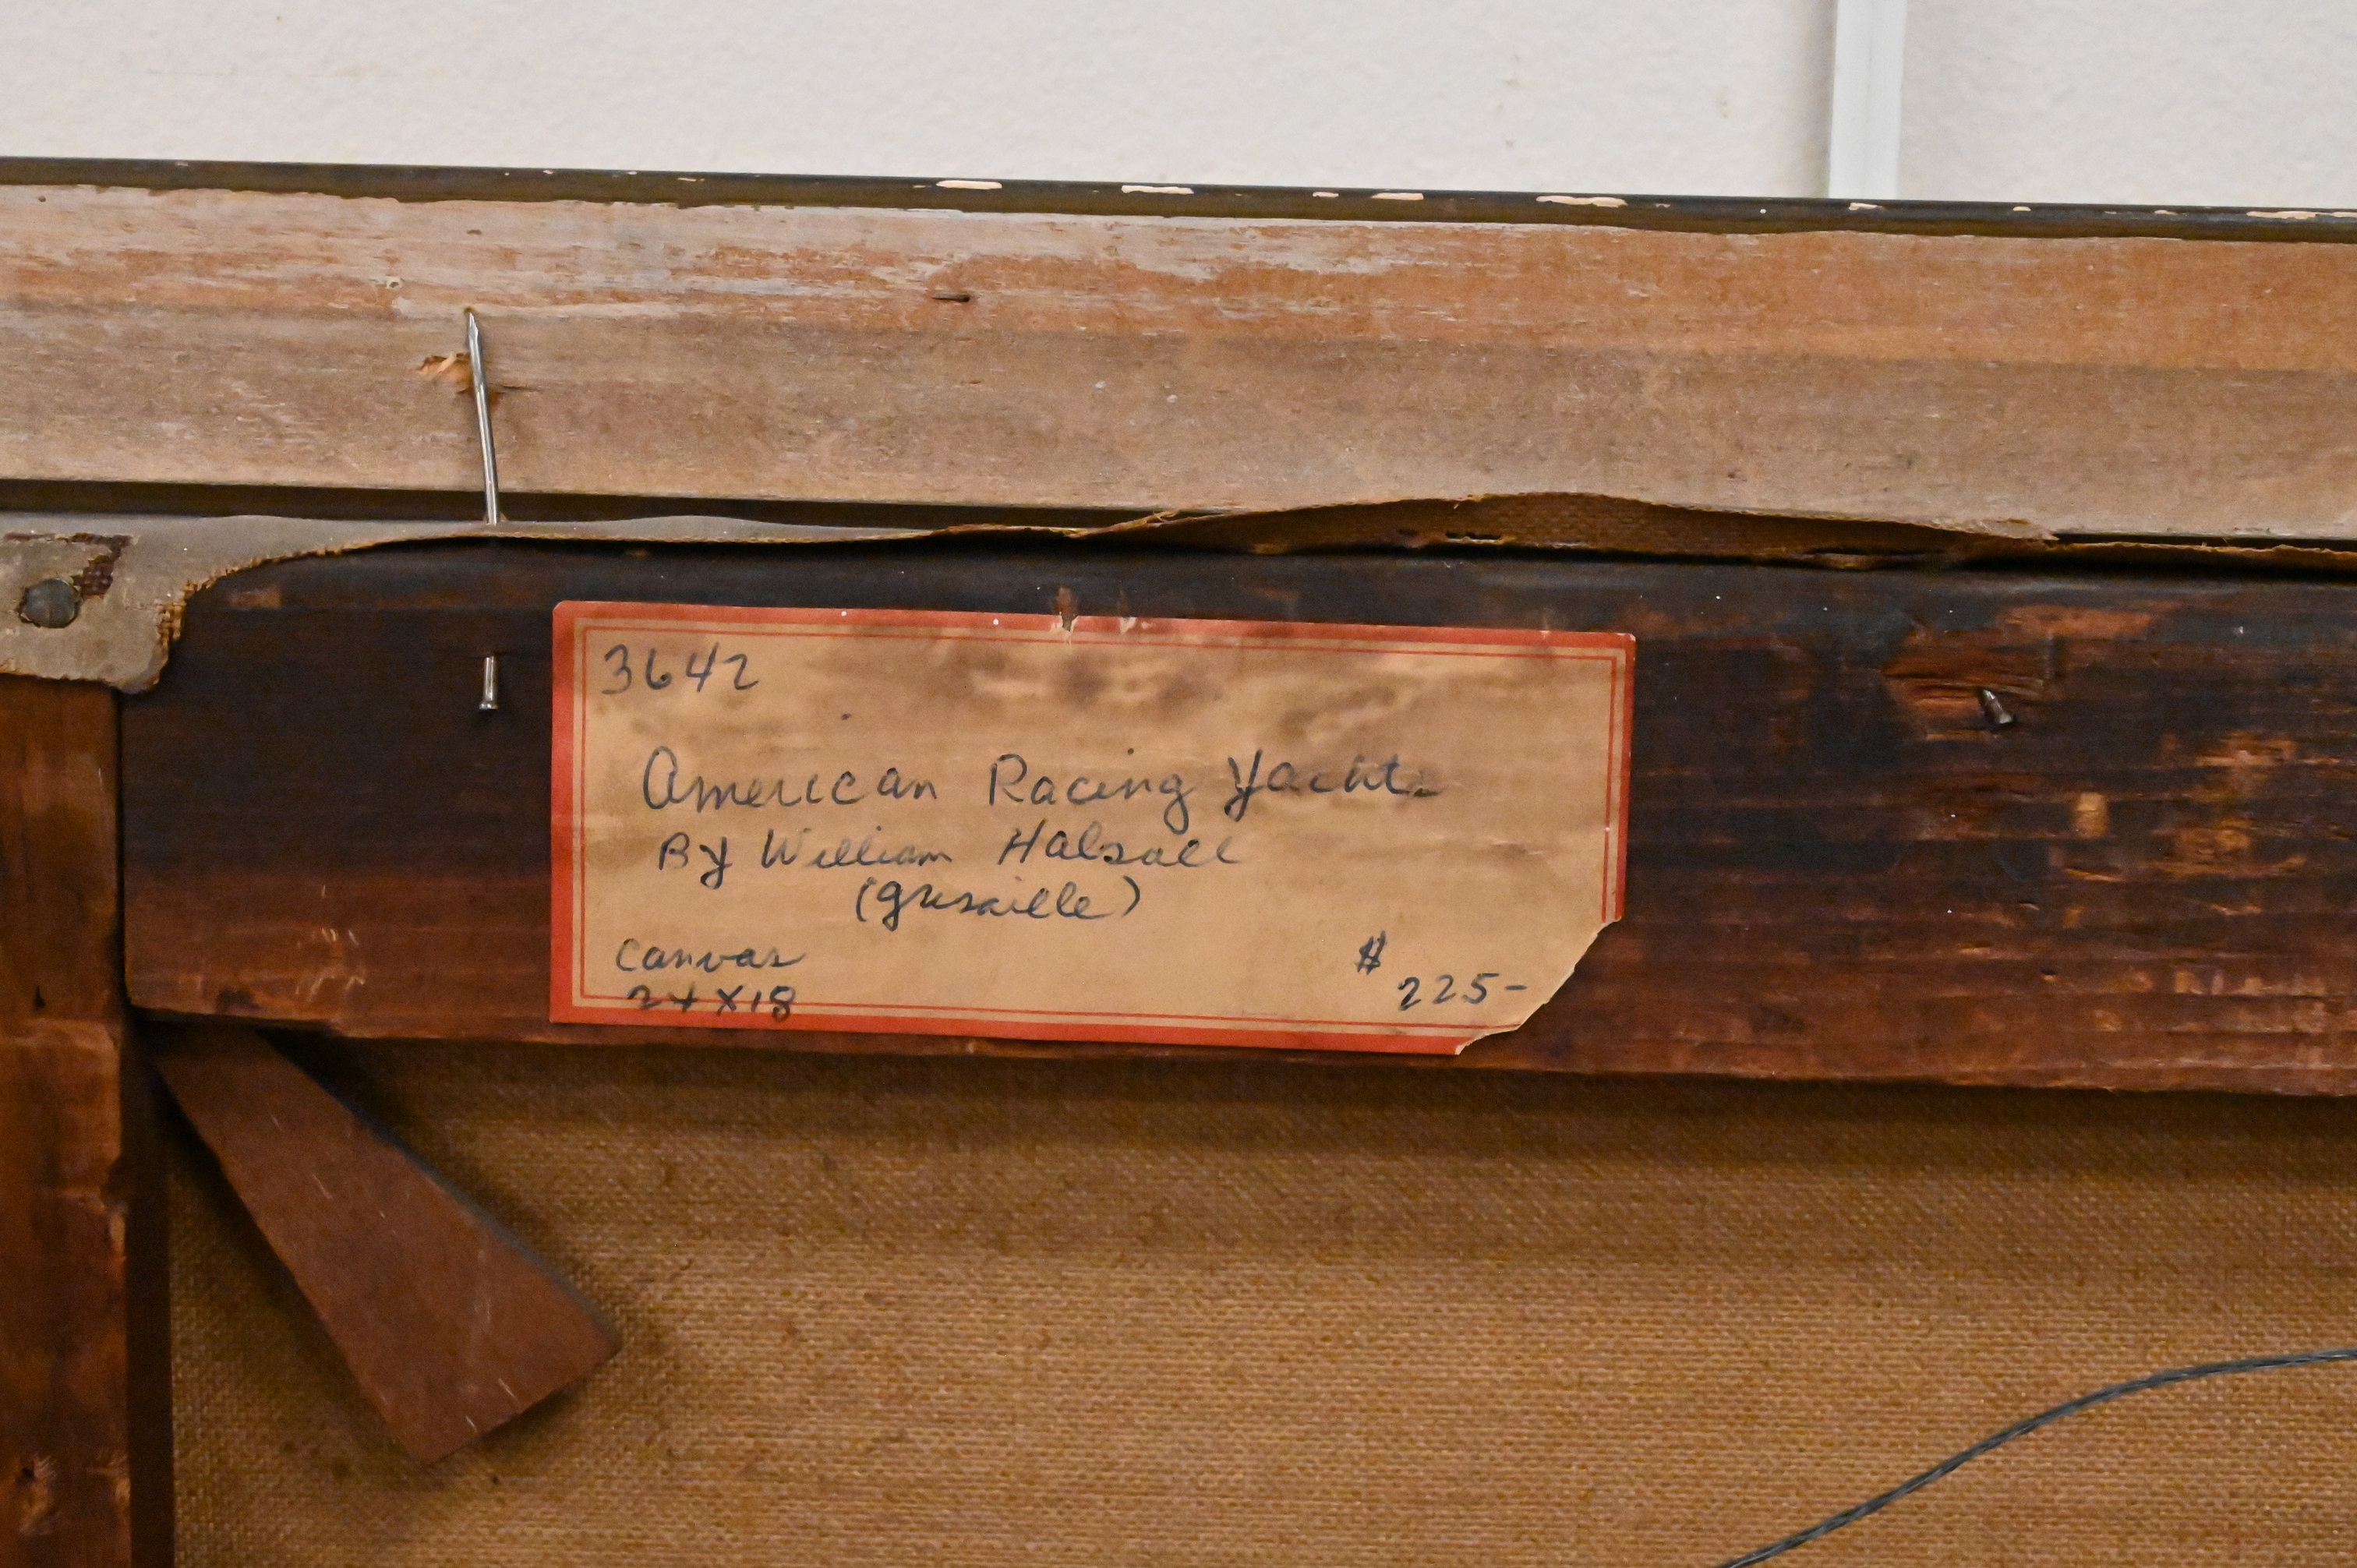 3642
American Racing Yacht.
By William Halsall
(grisaille)
Canvas
24 X 18
$
225-